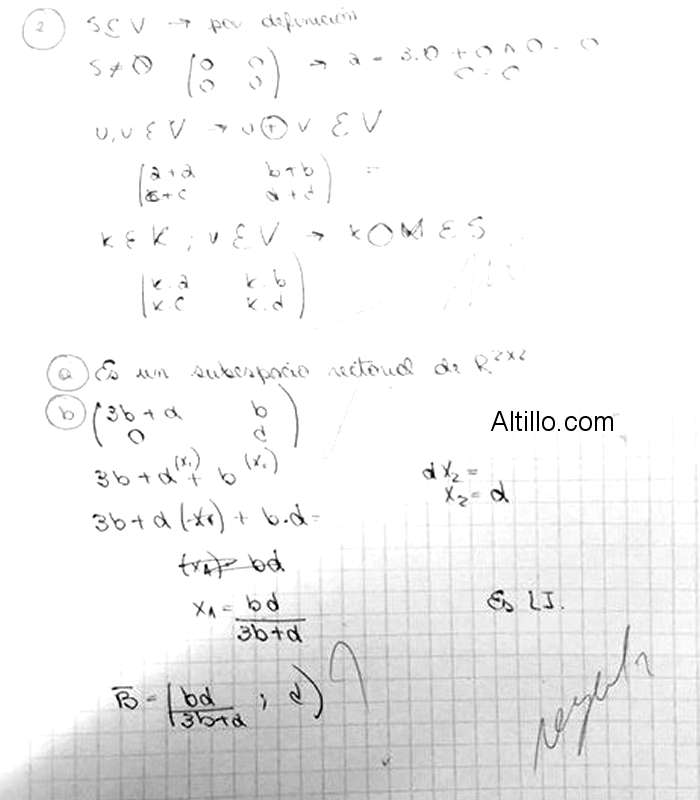 2 S ⊆ V → por definición
S ≠ ∅ (0 0 → a = 3.0 + 0 ∧ 0 = 0
0 0) 0 = 0
u, v ∈ V → u ⊕ v ∈ V
(a+a b+b =
c+c d+d)
k ∈ K ; v ∈ V → k ⊙ M ∈ S
(k.a k.b
k.c k.d)
a Es un subespacio vectorial de R^2x2
b (3b+d b
0 d)
Altillo.com
3b + d (x1) + b (x2)
d x2 =
x2 = d
3b + d (-x1) + b.d =
bd
x1 = bd / 3b+d
Es LI.
B = (bd / 3b+d ; d)